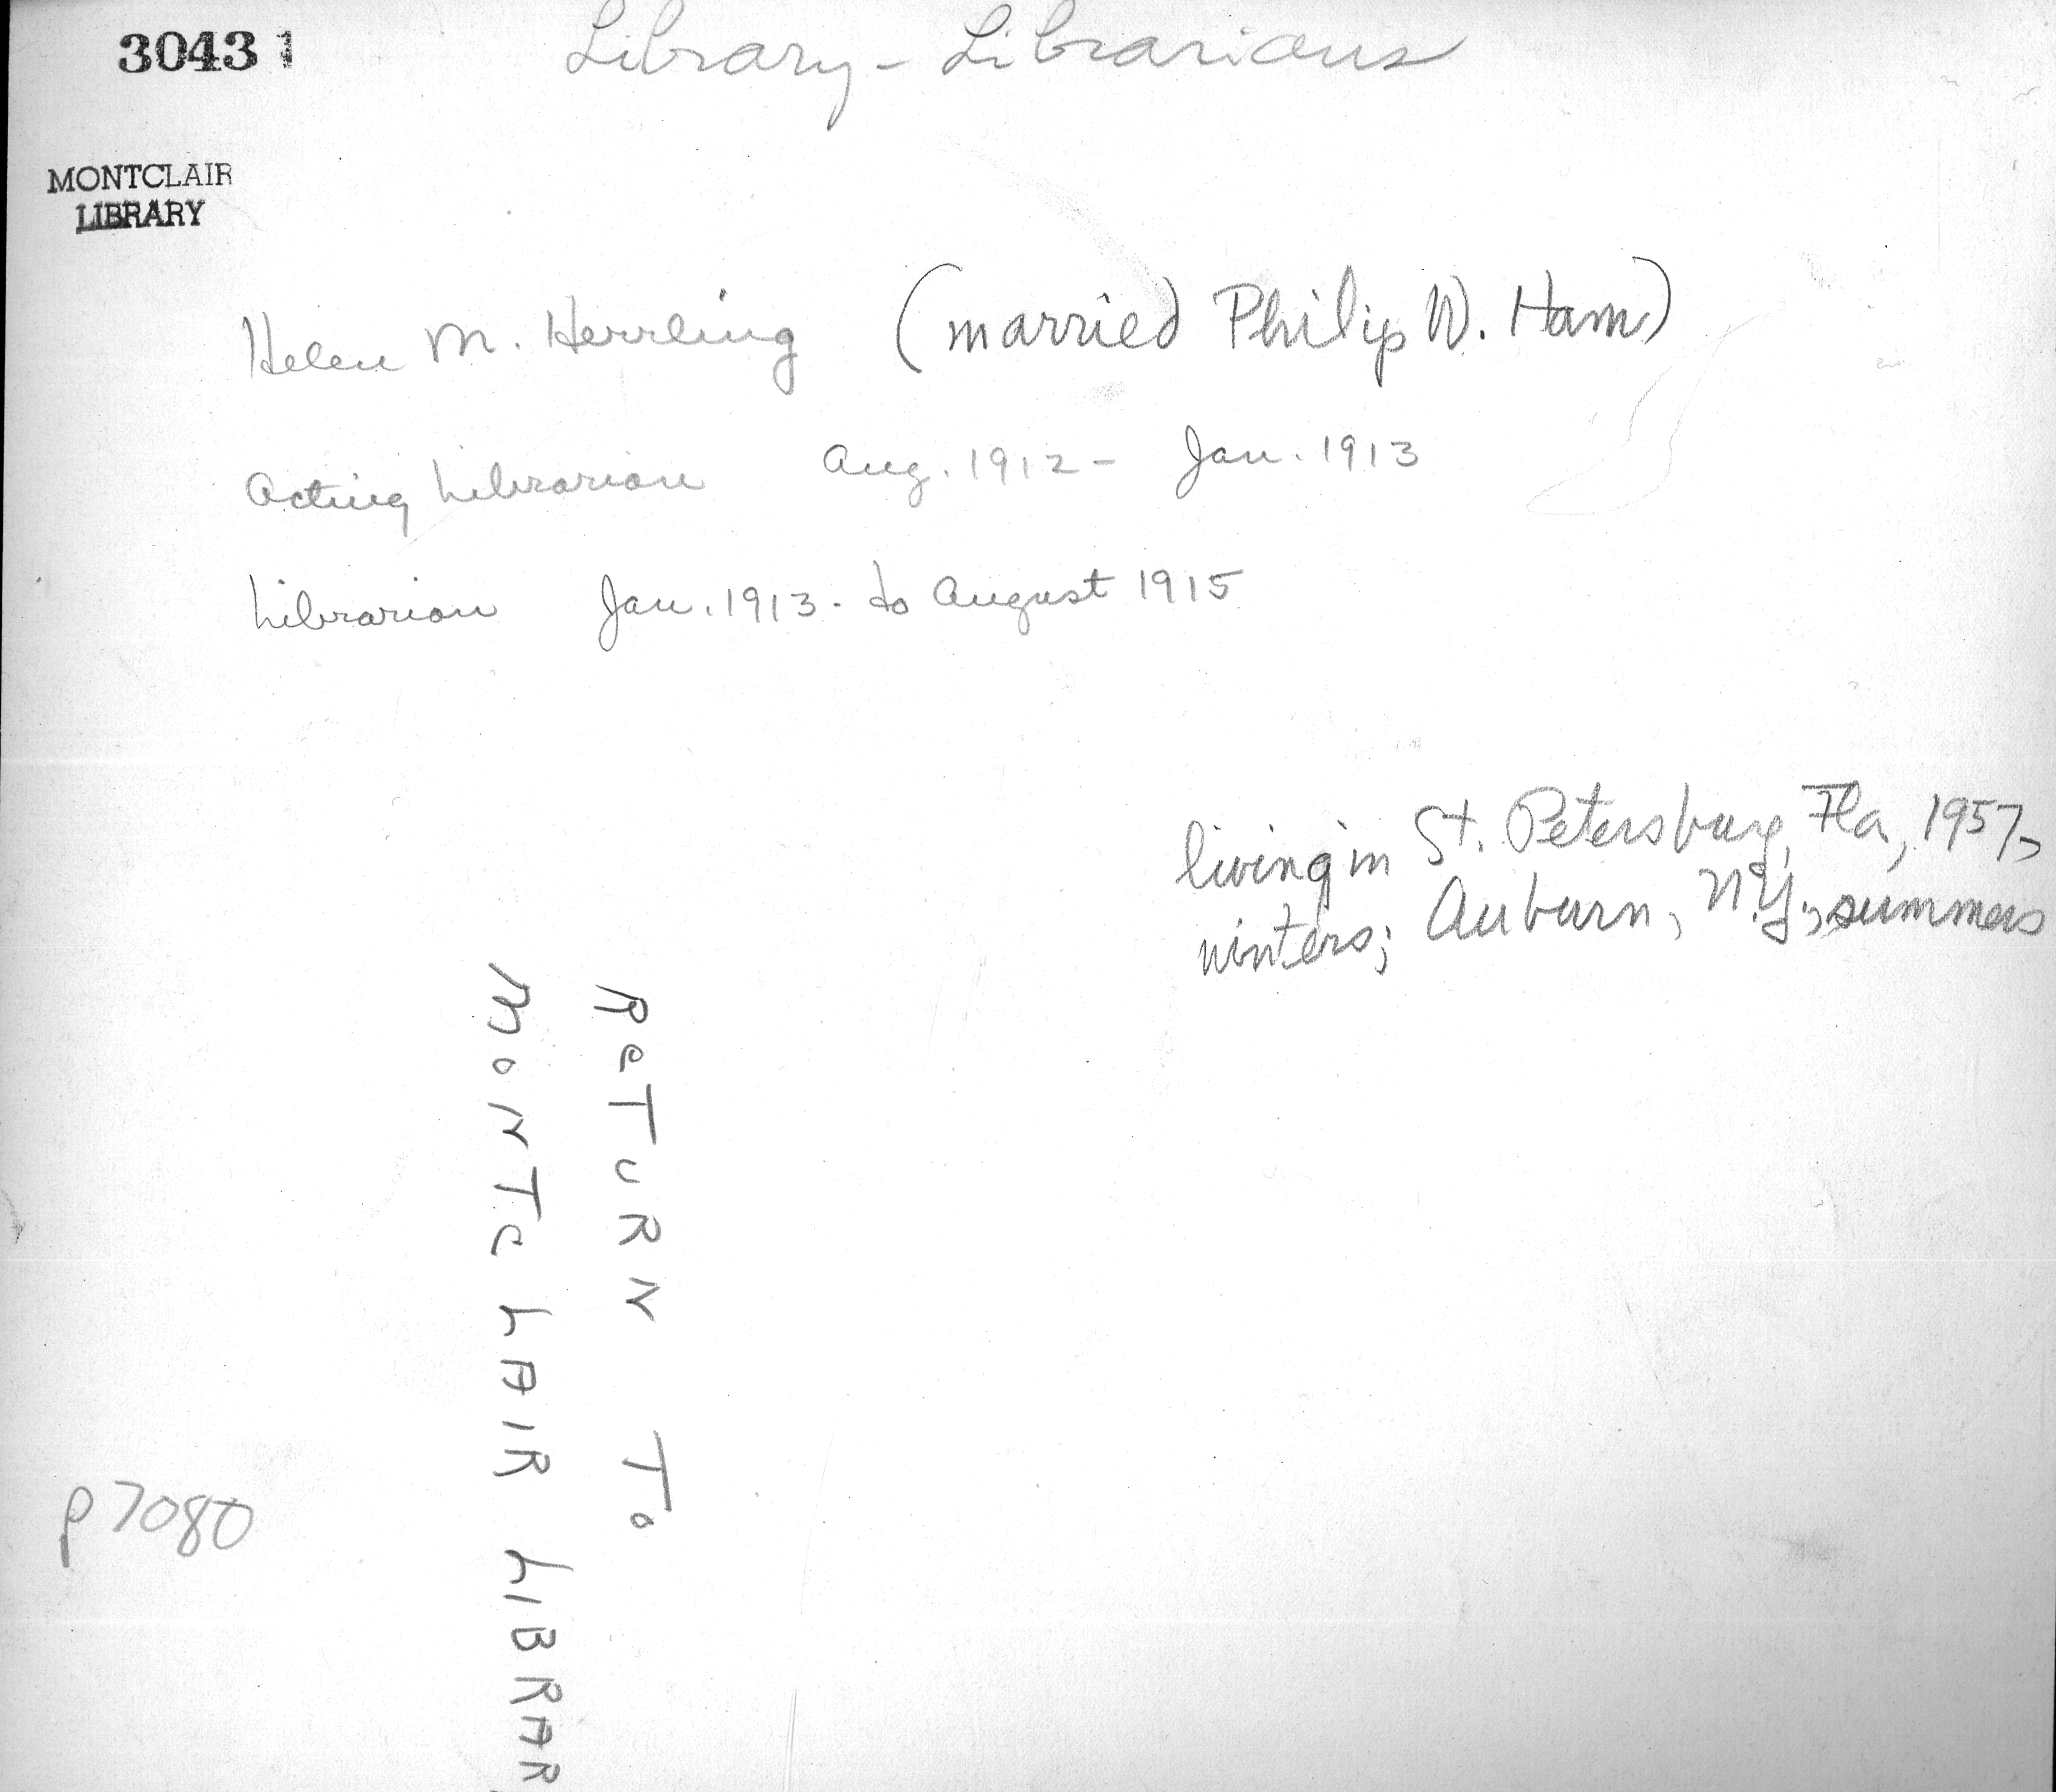 3043 1
Library - Librarians
MONTCLAIR
LIBRARY
Helen M. Herrling (married Philip W. Ham)
Acting Librarian Aug. 1912 - Jan. 1913
Librarian Jan. 1913 - to August 1915
living in St. Petersburg, Fla, 1957,
winters; Auburn, N.Y., summers
RETURN To
MONTCLAIR LIBRAR
p7080